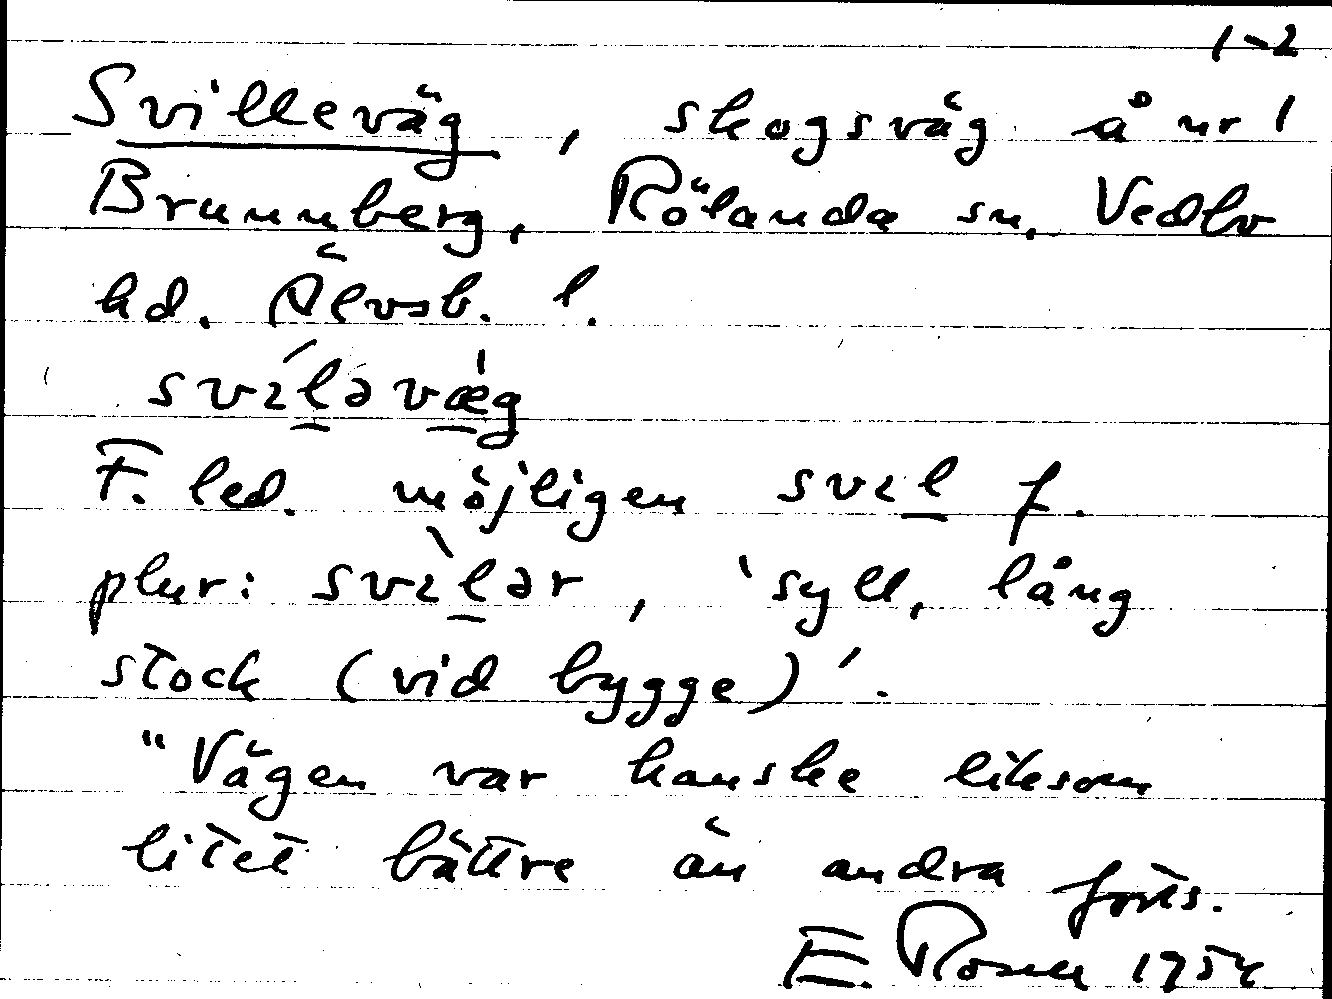 1-2
Svilleväg, skogsväg å nr 1
Brunnberg, Rölanda sn, Vedbo
hd. Älvsb. l.
svíləvæ̀g
F. led. möjligen svɪl f.
plur: svɪ̀lər, 'syll, lång
stock (vid bygge)'.
"Vägen var kanske liksom
litet bättre än andra forts.
E. Rosell 1954